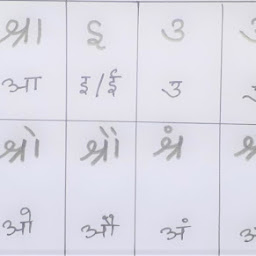 श्रा इ उ
आ इ/ई उ
श्रो श्रौ श्रं
ओ औ अं